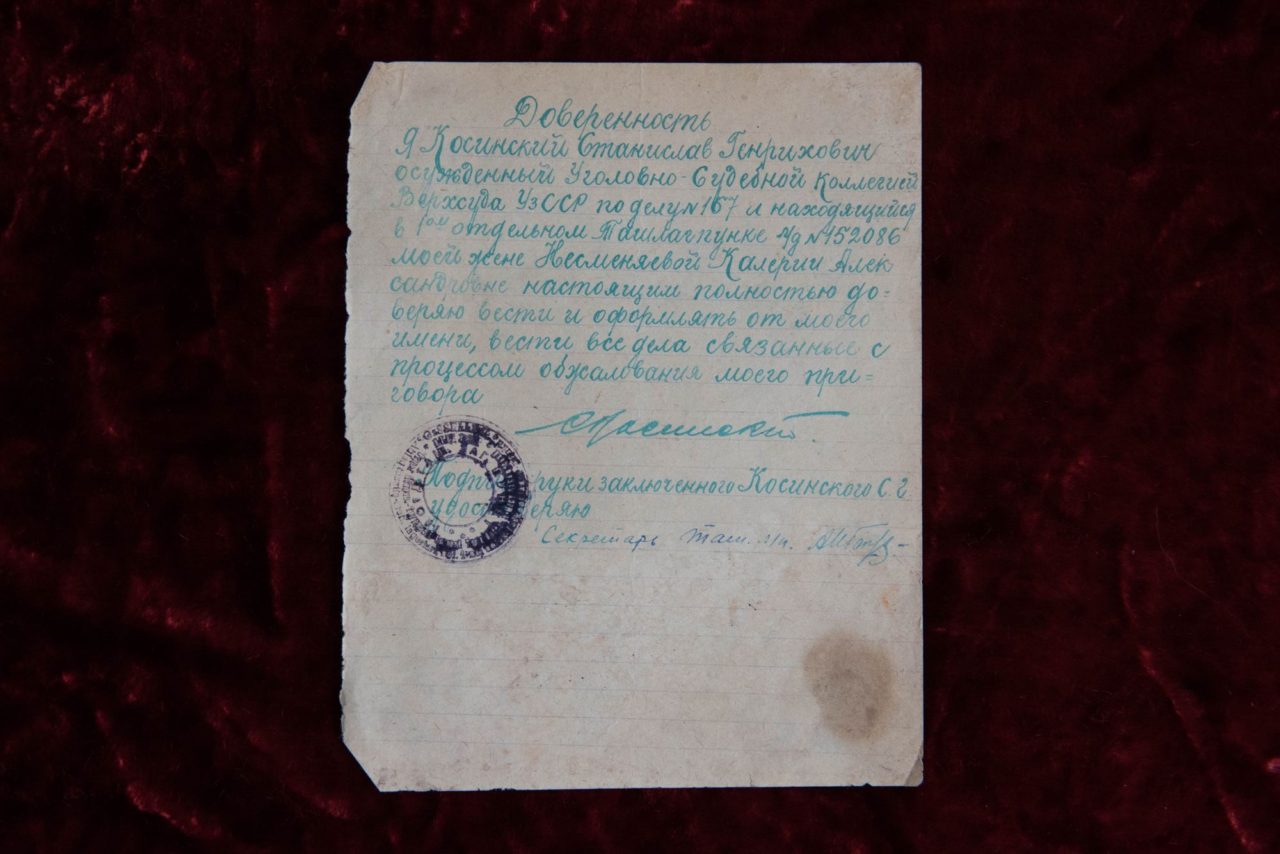 Доверенность
Я Косинский Станислав Генрихович
осужденный Уголовно-Судебной Коллегией
Верхсуда УзССР по делу №167 и находящийся
в 1ом отдельном Ташлагпункте л/д №152086
моей жене Несменяевой Калерии Алек
сандровне настоящим полностью до=
веряю вести и оформлять от моего
имени, вести все дела связанные с
процессом обжалования моего при=
говора
Подпись руки заключенного Косинского С.Г.
удостоверяю
Секретарь Таш. л/п.